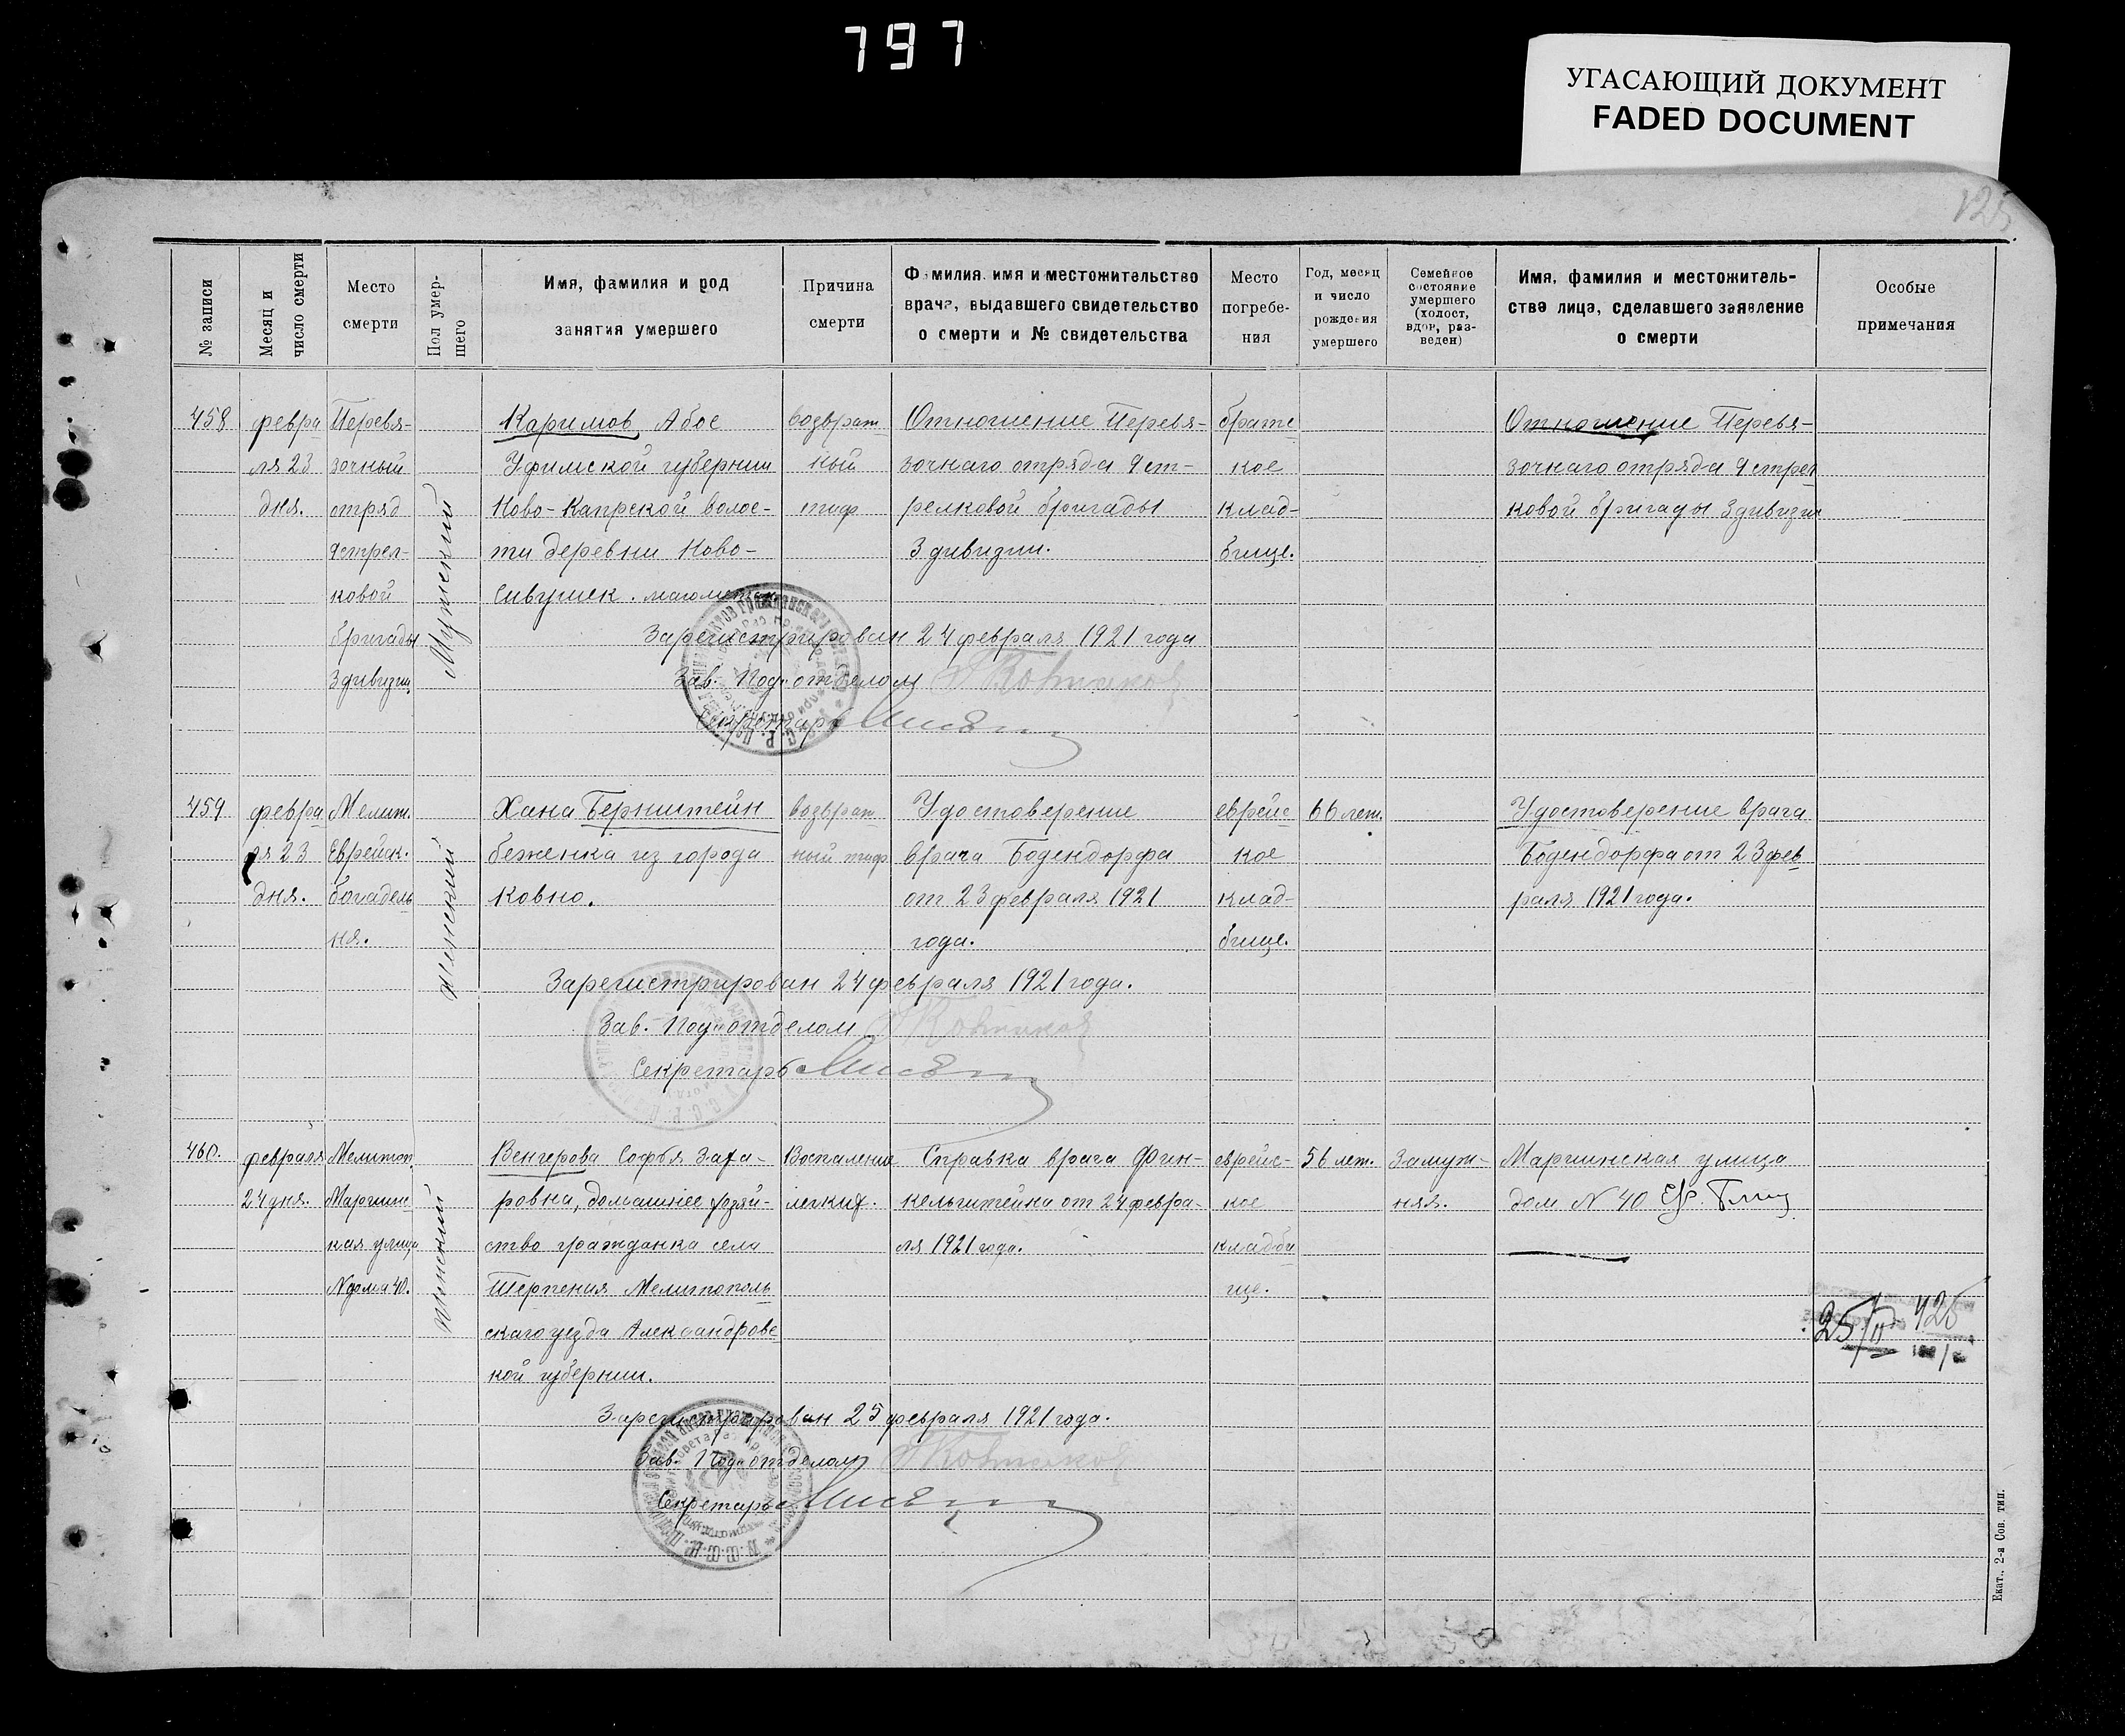 797
УГАСАЮЩИЙ ДОКУМЕНТ
FADED DOCUMENT
125
№ записи
Месяц и
число смерти
Место
смерти
Пол умер-
шего
Имя, фамилия и род
занятия умершего
Причина
смерти
Фамилия, имя и местожительство
врача, выдавшего свидетельство
о смерти и № свидетельства
Место
погребе-
ния
Год, месяц
и число
рождения
умершего
Семейное
состояние
умершего
(холост,
вдов, раз-
веден)
Имя, фамилия и местожитель-
ства лица, сделавшего заявление
о смерти
Особые
примечания
458
февра
ля 23
дня.
Перевя-
зочный
отряд
9 стрел-
ковой
бригады
3 дивизии
Мужский
Каримов Абос
Уфимской губернии
Ново-Капрской волос-
ти деревни Ново-
Сивушек. магометан
возврат
ный
тиф
Отношение Перевя-
зочнаго отряда 9 ст-
релковой бригады
3 дивизии.
братс
кое
клад-
бище.
Отношение Перевя-
зочнаго отряда 9 стрел
ковой бригады 3 дивизии
Зарегистрирован 24 февраля 1921 года
Зав. Подотделом
Секретарь
459
февра
ля 23
дня.
Мелит.
Еврейск.
богадель
ня.
Женский
Хана Бернштейн
беженка из города
Ковно.
возврат
ный тиф
Удостоверение
врача Бодендорфа
от 23 февраля 1921
года.
еврейс
кое
клад-
бище.
66 лет.
Удостоверение врача
Бодендорфа от 23 фев
раля 1921 года.
Зарегистрирован 24 февраля 1921 года.
Зав. Подотделом
Секретарь
460.
февраля
24 дня.
Мелитоп.
Мариинс
кая улица
N дома 40.
Женский
Венгерова Софья Заха-
ровна, домашнее хозяй-
ство гражданка села
Терпения Мелитополь
скаго уезда Александровс
кой губернии.
Воспаление
легких.
Справка врача Фин-
кельштейна от 24 февра-
ля 1921 года.
еврейс-
кое
кладби
ще.
56 лет.
Замуж-
няя.
Мариинская улица
дом N 40
25/II 425
Зарегистрирован 25 февраля 1921 года.
Зав. Подотделом
Секретарь
Екат., 2-а Сов. тип.